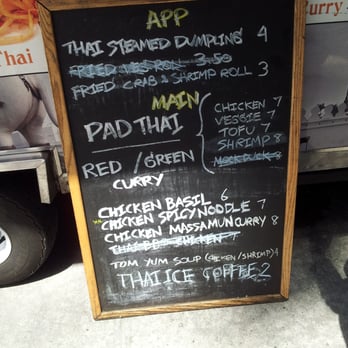 APP
THAI STEAMED DUMPLING 4
FRIED VEG ROLL 3.50
FRIED CRAB & SHRIMP ROLL 3
MAIN
PAD THAI
RED / GREEN
CURRY
CHICKEN 7
VEGGIE 7
TOFU 7
SHRIMP 8
MOCK DUCK 8
CHICKEN BASIL 6
CHICKEN SPICY NOODLE 7
CHICKEN MASSAMUN CURRY 8
THAI BBQ CHICKEN 7
TOM YUM SOUP (CHICKEN/SHRIMP) 4
THAI ICE COFFEE 2
Thai
Curry